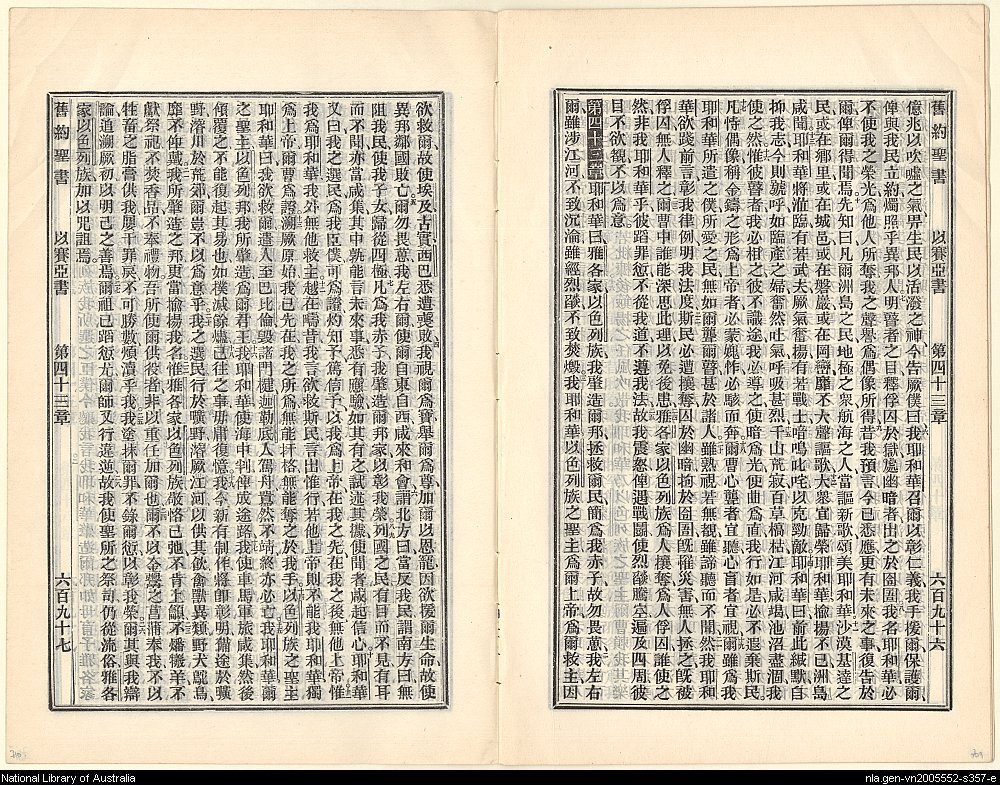 舊約聖書 以賽亞書 第四十三章 六百九十六
億兆以吹噓之氣畀生民以活潑之神今告厥僕曰我耶和華召爾以彰仁義我手援爾保護爾
俾與我民立約燭照乎異邦人明瞽者之目釋俘囚於獄處幽暗者出之於囹圄我名耶和華必
不使我之榮光爲他人所奪我之聲譽爲偶像所得昔我預言今已悉應更有未來之事復告於
爾俾爾得聞焉先知曰凡爾洲島之民地極之衆航海之人當謳新歌頌美耶和華沙漠基達之
民或在鄉里或在城邑或在磐巖或在岡巒靡不大聲謳歌大衆宜歸榮耶和華揄揚不已洲島
咸聞耶和華將涖臨有若武夫厥氣奮揚有若戰士喑嗚叱咤以克勁敵耶和華曰前此緘默自
抑我志今則號呼如臨產之婦奮然吐氣呼吸甚烈千山荒寂百草槁枯江河咸堨池沼盡涸我
使之然惟彼瞽者我必相之彼不識途我必導之使暗爲光使曲爲直我行如是必不遐棄斯民
凡恃偶像稱金鑄之形爲上帝者必蒙媿怍必駭而奔爾曹心聾者宜聽心盲者宜視爾雖爲我
耶和華所遣之僕所愛之民無如爾聾爾瞽甚於諸人雖熟視若無覩雖諦聽而不聞然我耶和
華欲踐前言彰我律例明我法度斯民必遭攘奪囚於幽暗拘於囹圄旣罹災害無人拯之旣被
俘囚無人釋之爾曹中誰能深思此理以免後患雅各家以色列族爲人攘奪爲人俘囚誰使之
然非我耶和華乎彼蹈罪愆不從我道不遵我法故我震怒俾遇戰鬬使烈燄騰空遍及四周彼
目不欲觀不以爲意
第四十三章耶和華曰雅各家以色列族我肇造爾邦拯救爾民簡爲我赤子故勿畏葸我左右
爾雖涉江河不致沉淪雖經烈燄不致焚燬我耶和華以色列族之聖主爲爾上帝爾救主因
欲救爾故使埃及古實西巴悉遭喪敗我視爾爲寶舉爾爲尊加爾以恩寵因欲援爾生命故使
異邦鄰國敗亡爾勿畏葸我左右爾使爾自東自西咸來和會謂北方曰當反我民謂南方曰無
阻我民使我子女歸從四極凡爲我赤子我肇造爾邦家以彰我榮列國之民有目而不見有耳
而不聞亦當咸集其中孰能言未來事悉有應驗如其有之試述其據使聞者咸起信心耶和華
又曰我之選民爲我臣僕可爲證灼知予篤信予以我爲上帝在我之先在我之後無他上帝惟
我爲耶和華我外無他救主越在疇昔我言欲救斯民言出惟行若他上帝則不能我耶和華獨
爲上帝爾曹爲證溯厥原始我已先在我之所爲無能扞格無能奪之於我手以色列族之聖主
耶和華曰我欲救爾遣人至巴比倫毀諸門楗迦勒底人駕舟囂然不靖終亦必亡我耶和華爾
之聖主以色列邦我所肇造爲爾君王我耶和華使海中判俾成途路我使車馬軍旅咸集然後
傾覆之不能復起其易也如撲滅餘燼已往之事毋庸復憶我今新有制作將卽彰明備途於曠
野濬川於荒郊爾豈不以爲意乎我之選民行於曠野濬厥江河以供其飲禽獸異類野犬鴕鳥
靡不俾戴我所肇造之邦更當揄揚我名惟雅各家以色列族敬恪已弛不肯上籲不燔獻羊不
獻祭祀不焚香品不奉禮物吾所使爾供役者非以重任加爾也爾不以金購之菖蒲奉我不以
牲畜之脂膏供我屢干罪戾不可勝數煩瀆乎我我塗抹爾罪不錄爾愆以彰我榮爾其與我辯
論道溯厥初以明己之善焉爾祖已蹈愆尤爾師又行違逆故我使聖所之祭司仍從流俗雅各
家以色列族加以咒詛焉
舊約聖書 以賽亞書 第四十三章 六百九十七
National Library of Australia
nla.gen-vn2005552-s357-e